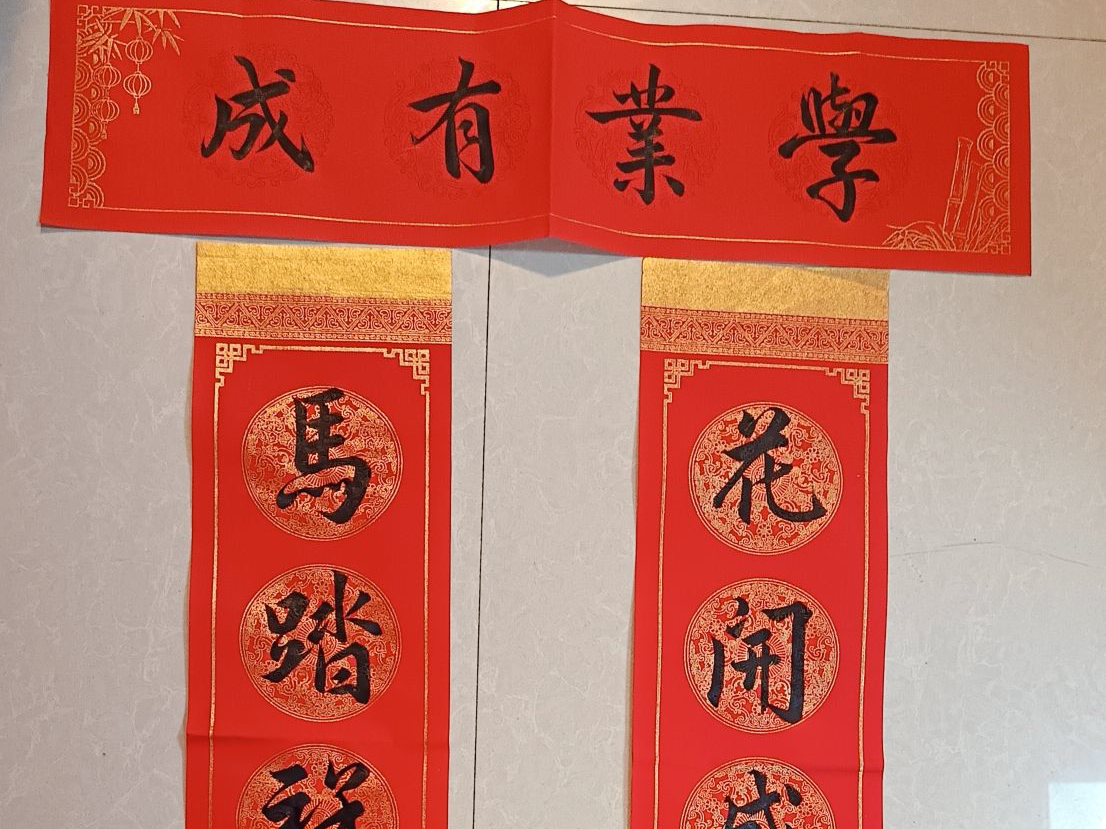 學業有成
花開
馬踏祥